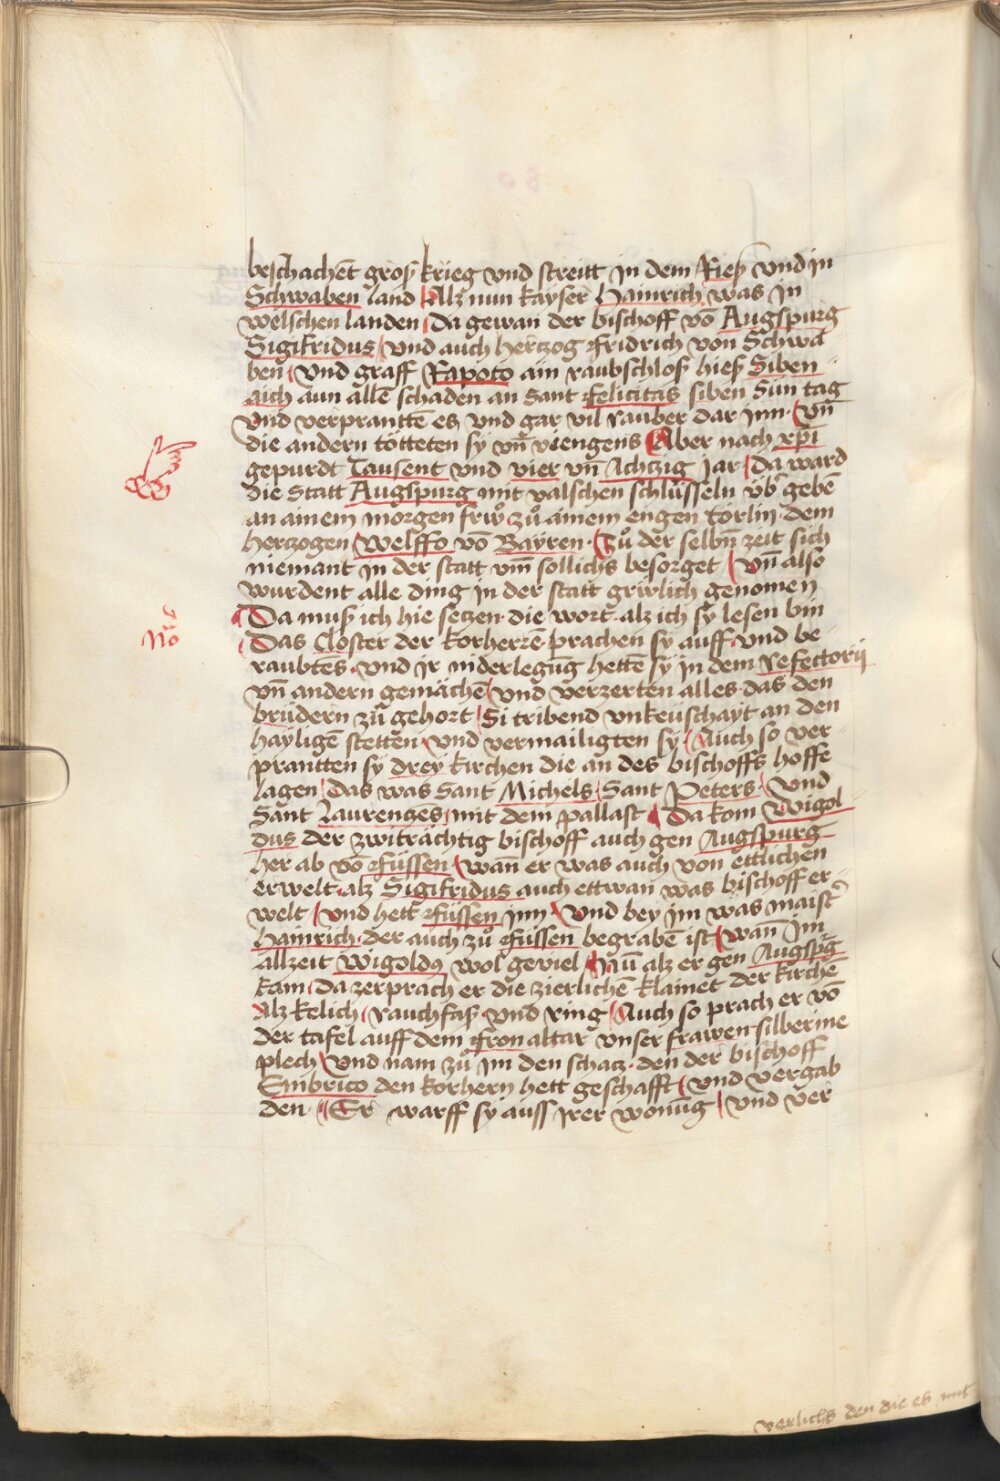 beschachēt groß krieg vnd streitt in dem Rieß vnd in
Schwaben land Alz nun kayser Hainrich was in
welschen landen Da gewan der bischoff vō Augspurg
Sigifridus vnd auch hertzog Fridrich von Schwa
ben vnd graff Rapoto ain raubschloß hieß Siben
aich aun allē schaden an Sant Felicitas siben Sun tag
vnd verprantē es vnd gar vil rauber dar inn vn̄
die andern tötteten sy vn̄ viengens Aber nach xp̄i
gepurdt Tausent vnd vier vn̄ Achtzig jar Da ward
die Statt Augspurg mit valschen schlüsseln vb̓ gebē
an ainem morgen frwͦ zuͦ ainem engen törlin dem
hertzogen Welffo vō Bayren Zuͦ der selbn̄ zeit sich
niemant in der statt vm̄ sollichs besorget vn̄ also
wurdent alle ding in der statt grwlich genomen
Da muß ich hie setzen die wort alz ich sy lesen bin
No
Das Closter der korherrē prachen sy auff vnd be
raubtēs vnd jr niderlegūg hettē sy in dem Refectorij
vn̄ andern gemächē vnd verzerten alles das den
brüdern zuͦ gehort Si tribend vnkeüschayt an den
hayligē stetten vnd vermailigten sy Auch so ver
prantten sy drey kirchen die an des bischoffs hoffe
lagen Das was Sant Michels Sant Peters vnd
Sant Laurentzēs mit dem pallast Da kom Wigol
dus der zwiträchtig bischoff auch gen Augspurg
her ab vō Füssen wan̄ er was auch von ettlichen
erwelt alz Sigifridus auch ettwan was bischoff er
welt vnd hett Füssen jnn vnd bey jm was maist̓
Hainrich der auch zuͦ Füssen begrabē ist wan̄ jm
allzeit Wigoldꝰ wol geviel Nū alz er gen Augspg
kam da zerprach er die zierlichē klainet der kirchē
Alz kelich rauchfaß vnd ring Auch so prach er vō
der tafel auff dem Fron altar vnser frawen silberine
plech vnd nam zuͦ jm den schatz den der bischoff
Embrico den korhern hett geschafft vnd vergab
den Er warff sy auss jrer wonūg vnd ver
verlichs den die es mit